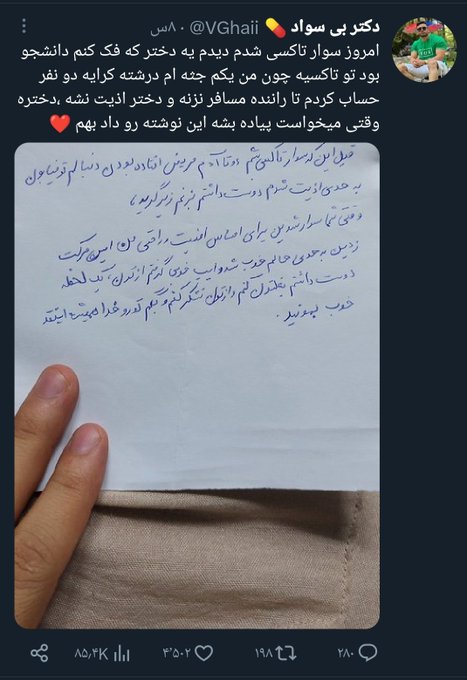 دکتر بی سواد 💊 @VGhaii · ۸۰س
امروز سوار تاکسی شدم دیدم یه دختر که فک کنم دانشجو
بود تو تاکسیه چون من یکم جثه ام درشته کرایه دو نفر
حساب کردم تا راننده مسافر نزنه و دختر اذیت نشه ،دختره
وقتی میخواست پیاده بشه این نوشته رو داد بهم ❤️
قبل این که سوار تاکسی بشم دو تا آدم مریض افتاده بودن دنبالم تو خیابون
به حدی اذیت شدم دوست داشتم بزنم زیر گریه،
وقتی شما سوار شدین برای احساس امنیت و راحتی من این حرکت
زدین به حدی حالم خوب شد و ایب خودی گرفتم ازتون، یک لحظه
دوست داشتم بغلتون کنم و ازتون تشکر کنم و بگم تو رو خدا همیشه اینقد
خوب بمونید.
۲۸۰ ۱۹۸ ۴٬۵۰۲ ۸۵٫۴K